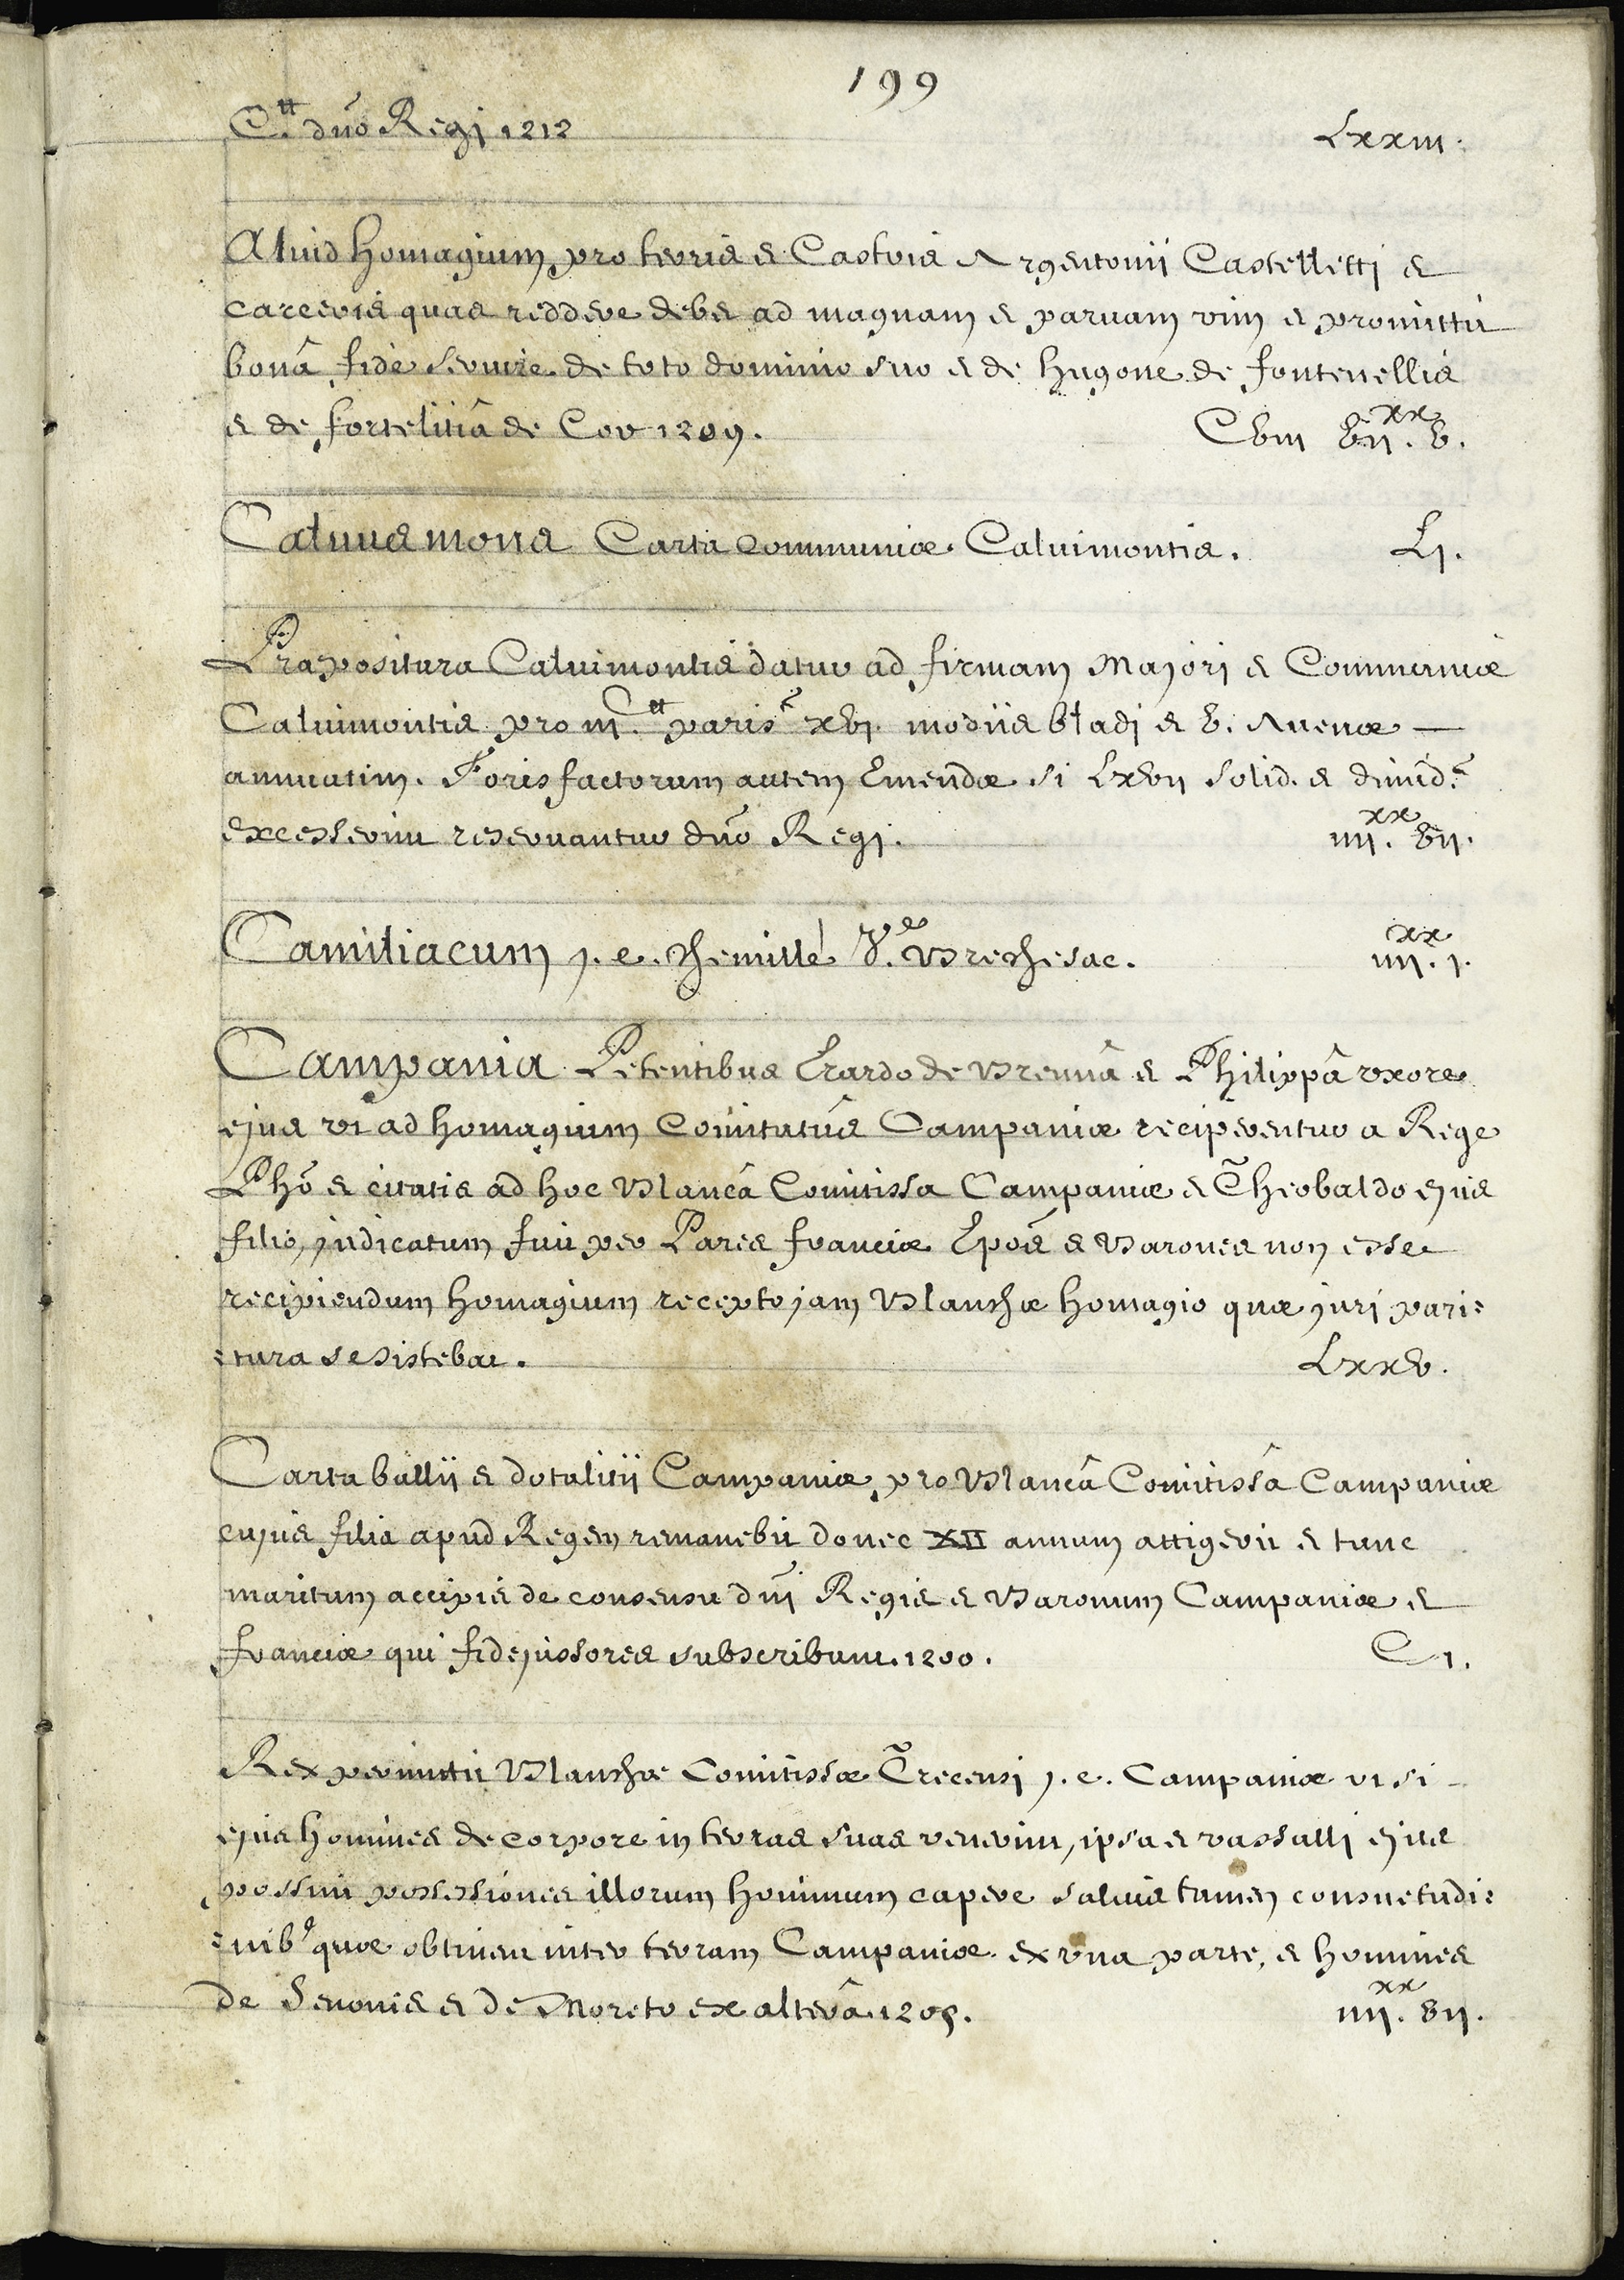 199
C.tt dno Regi 1212 Lxxiii.
Aliud homagium pro terris et Castris Argentonii Castelletti et
carceris quas reddere debet ad magnam et parvam vim et promittit
bonâ fide servire de toto dominio suo et de hugone de fontenellis
et de fortelitiâ de Cor 1209. Cviii vii.xx v.
Calvusmons Carta communiæ Calvimontis. Li.
Præpositura Calvimontis datur ad firmam Majori et Communiæ
Calvimontis pro iii.Ctt paris. xvi. modiis bladi et v. Avenæ —
annuatim. Forisfactorum autem Emendæ si Lxvii solid. et dimid.
excesserint reservantur dno Regi. iiii.xx vii.
Camiliacum j. e. Chemillé V.e Brechesac. iiii.xx j.
Campania Petentibus Erardo de Brennâ et Philippâ uxore
ejus ut ad homagium Comitatûs Campaniæ reciperentur a Rege
Pho et citatis ad hoc Blancâ Comitissa Campaniæ et Theobaldo ejus
filio, judicatum fuit per Pares franciæ Epos et Barones non esse
recipiendum homagium recepto jam Blanchæ homagio quæ juri pari=
=tura se sistebat. Lxxv.
Carta ballii et dotalitii Campaniæ pro Blancâ Comitissâ Campaniæ
cujus filia apud Regem remanebit donec XII annum attigerit et tunc
maritum accipiet de consensu dni Regis et Baronum Campaniæ et
franciæ qui fidejussores subscribunt. 1200. C 1.
Rex permittit Blanchæ Comitissæ Trecensi j. e. Campaniæ ut si -
ejus homines de corpore in terras suas venerint, ipsa et vassalli ejus
possint possessiones illorum hominum capere salvis tamen consuetudi=
=nib9 quæ obtinent inter terram Campaniæ ex una parte, et homines
de Senonis et de Moreto ex alterâ. 1205. iiii.xx vii.